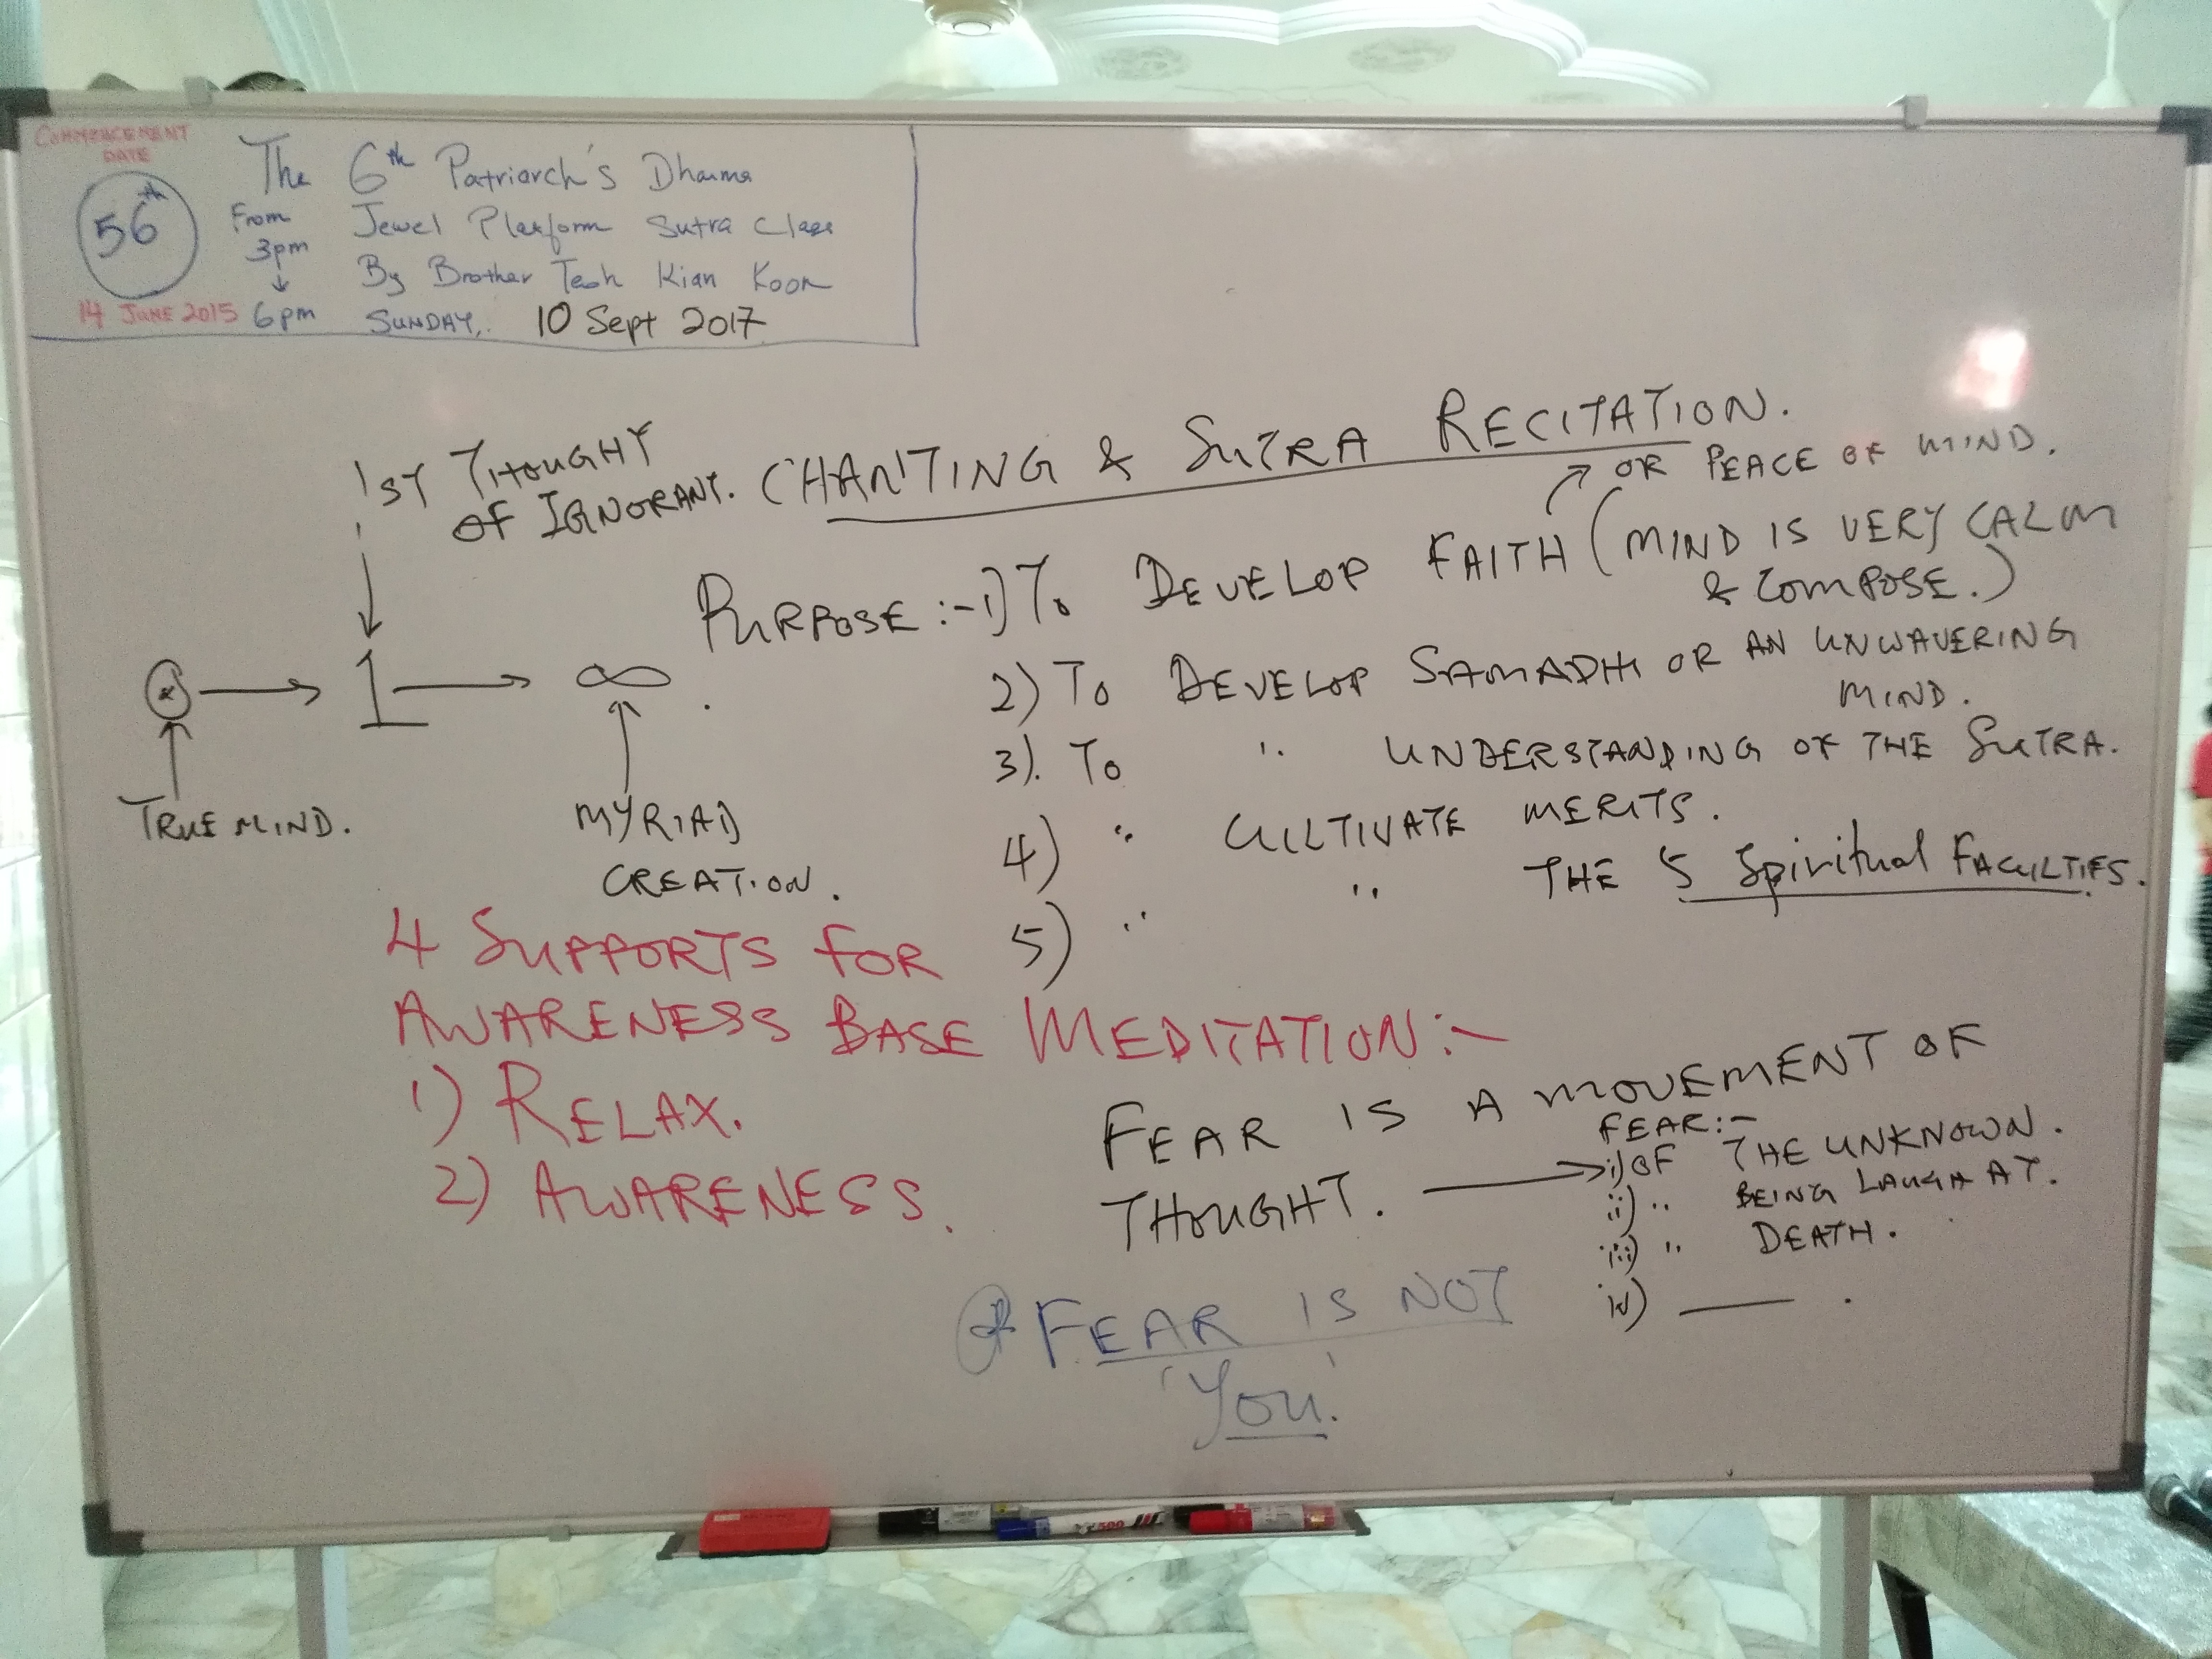 COMMENCEMENT
DATE
56th
14 JUNE 2015
From
3pm
↓
6pm
The 6th Patriarch's Dharma
Jewel Platform Sutra Class
By Brother Teoh Kian Koon
SUNDAY, 10 Sept 2017
1ST THOUGHT
OF IGNORANT.
CHANTING & SUTRA RECITATION.
OR PEACE OF MIND.
PURPOSE :- 1) TO DEVELOP FAITH (MIND IS VERY CALM
& COMPOSE.)
2) TO DEVELOP SAMADHI OR AN UNWAVERING
MIND.
3). TO " UNDERSTANDING OF THE SUTRA.
4) " CULTIVATE MERITS.
5) " " THE 5 Spiritual FACULTIES.
→ 1 → ∞.
TRUE MIND.
MYRIAD
CREATION.
4 SUPPORTS FOR
AWARENESS BASE MEDITATION:-
1) RELAX.
2) AWARENESS.
FEAR IS A MOVEMENT OF
THOUGHT. →
FEAR:-
i) OF THE UNKNOWN.
ii) " BEING LAUGH AT.
iii) " DEATH.
iv) —— .
* FEAR IS NOT
'YOU.'